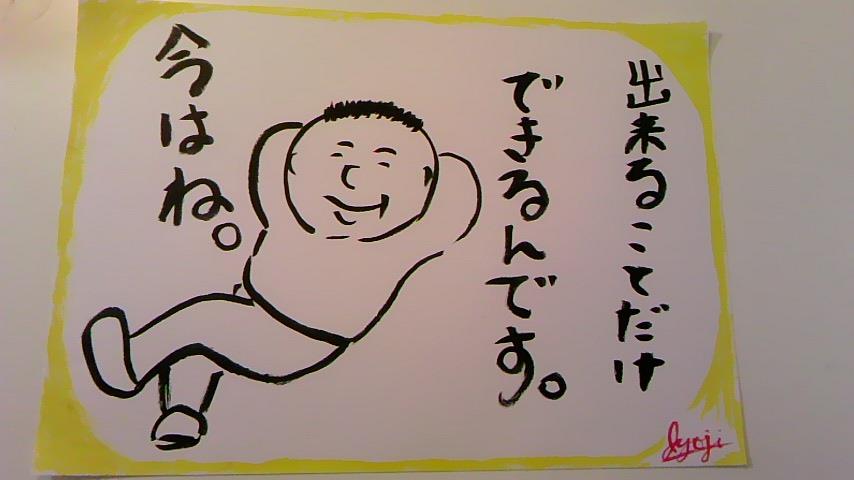 出来ることだけ
できるんです。
今はね。
Ryoji